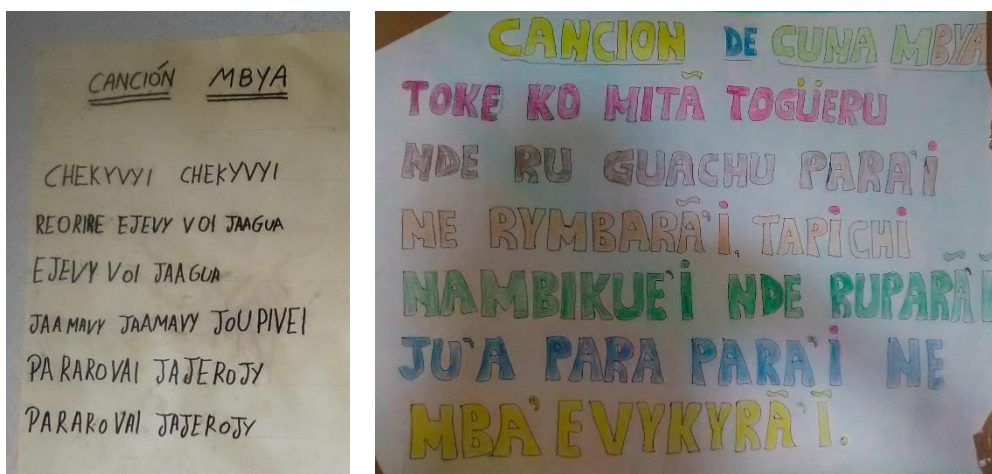 CANCIÓN MBYA
CHEKYVYI CHEKYVYI
REORIRE EJEVY VOI JAAGUA
EJEVY VOI JAAGUA
JAAMAVY JAAMAVY JOUPIVEI
PARAROVAI JAJEROJY
PARAROVAI JAJEROJY
CANCION DE CUNA MBYA
TOKE KO MITÃ TOGÜERU
NDE RU GUACHU PARA'I
NE RYMBARÃ'I, TAPICHI
NAMBIKUE'I NDE RUPARÃ'Ĩ
JU'A PARA PARA'I NE
MBA'EVYKYRÃ'Ĩ.